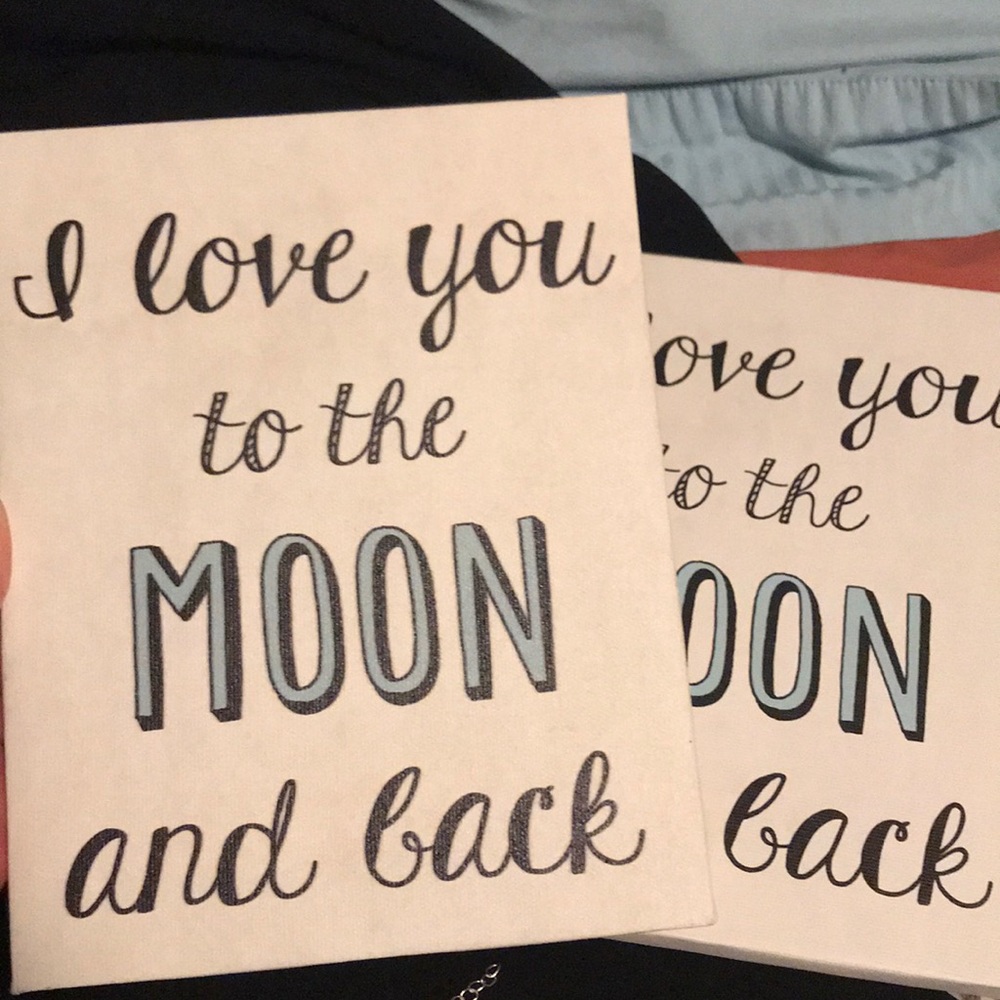 I love you
to the
MOON
and back
ove you
to the
OON
back